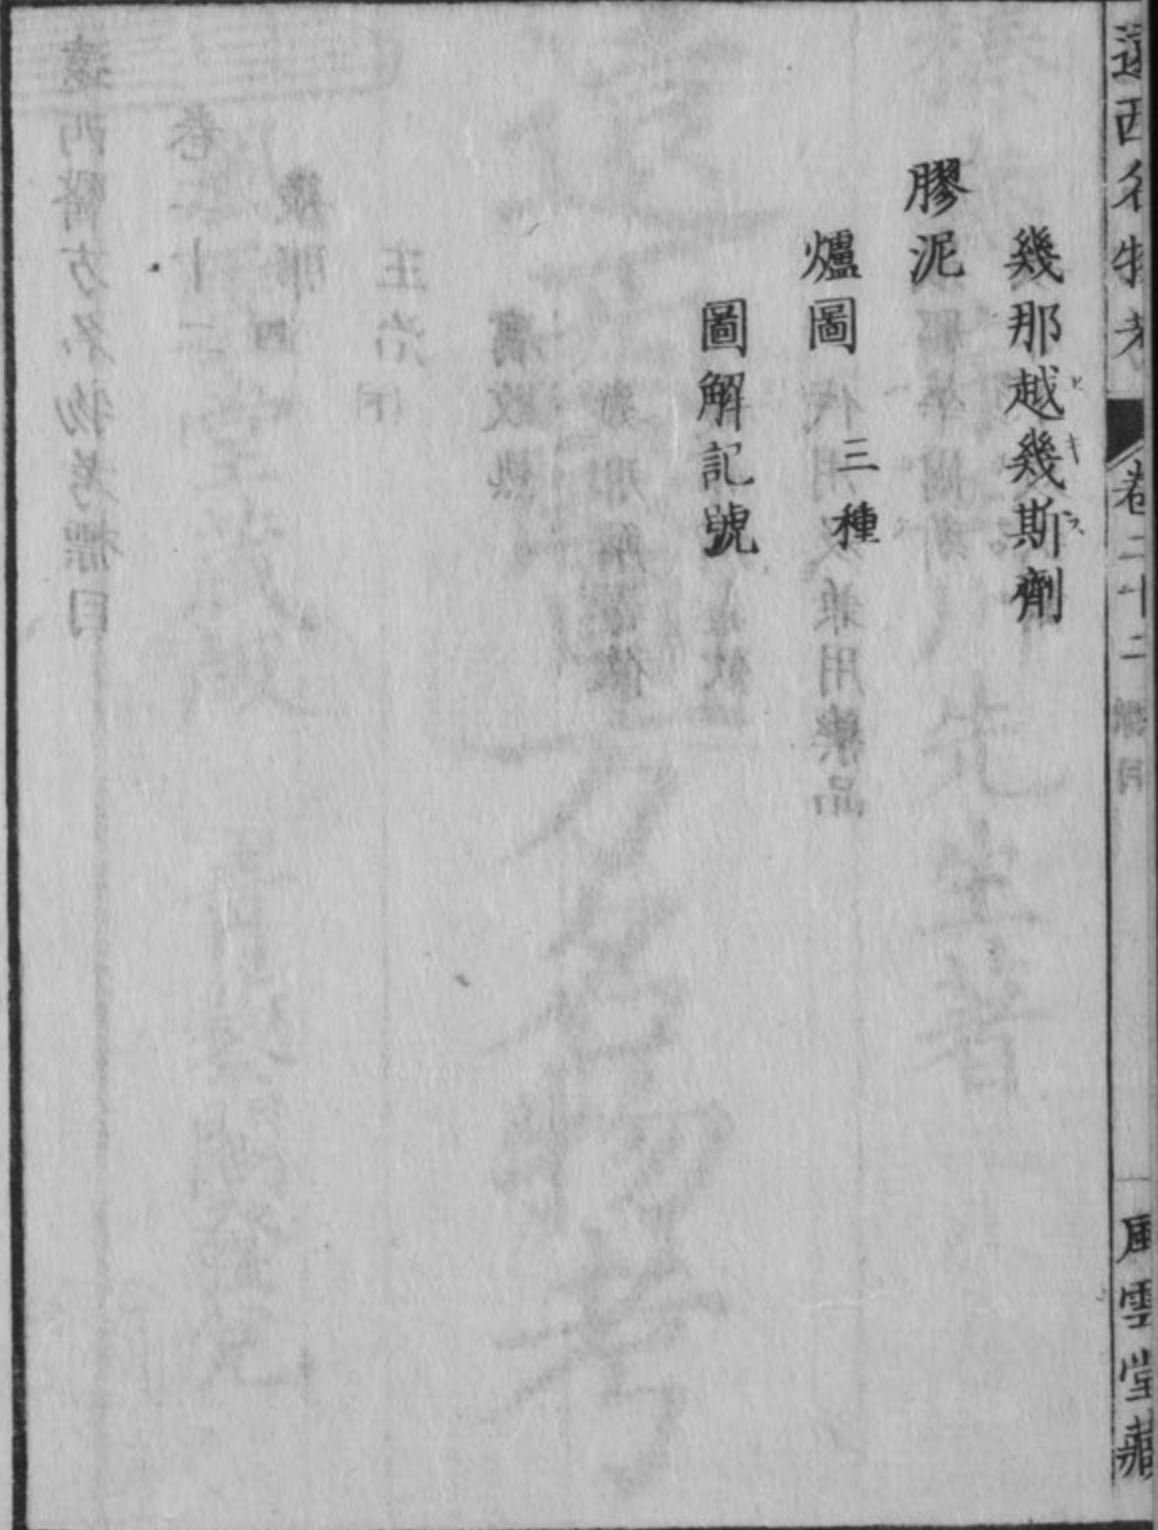 遠西名物考
卷二十二 標目
風雲堂藏
幾那越幾斯劑
ヒキス
膠泥
爐圖 三種
圖解記號